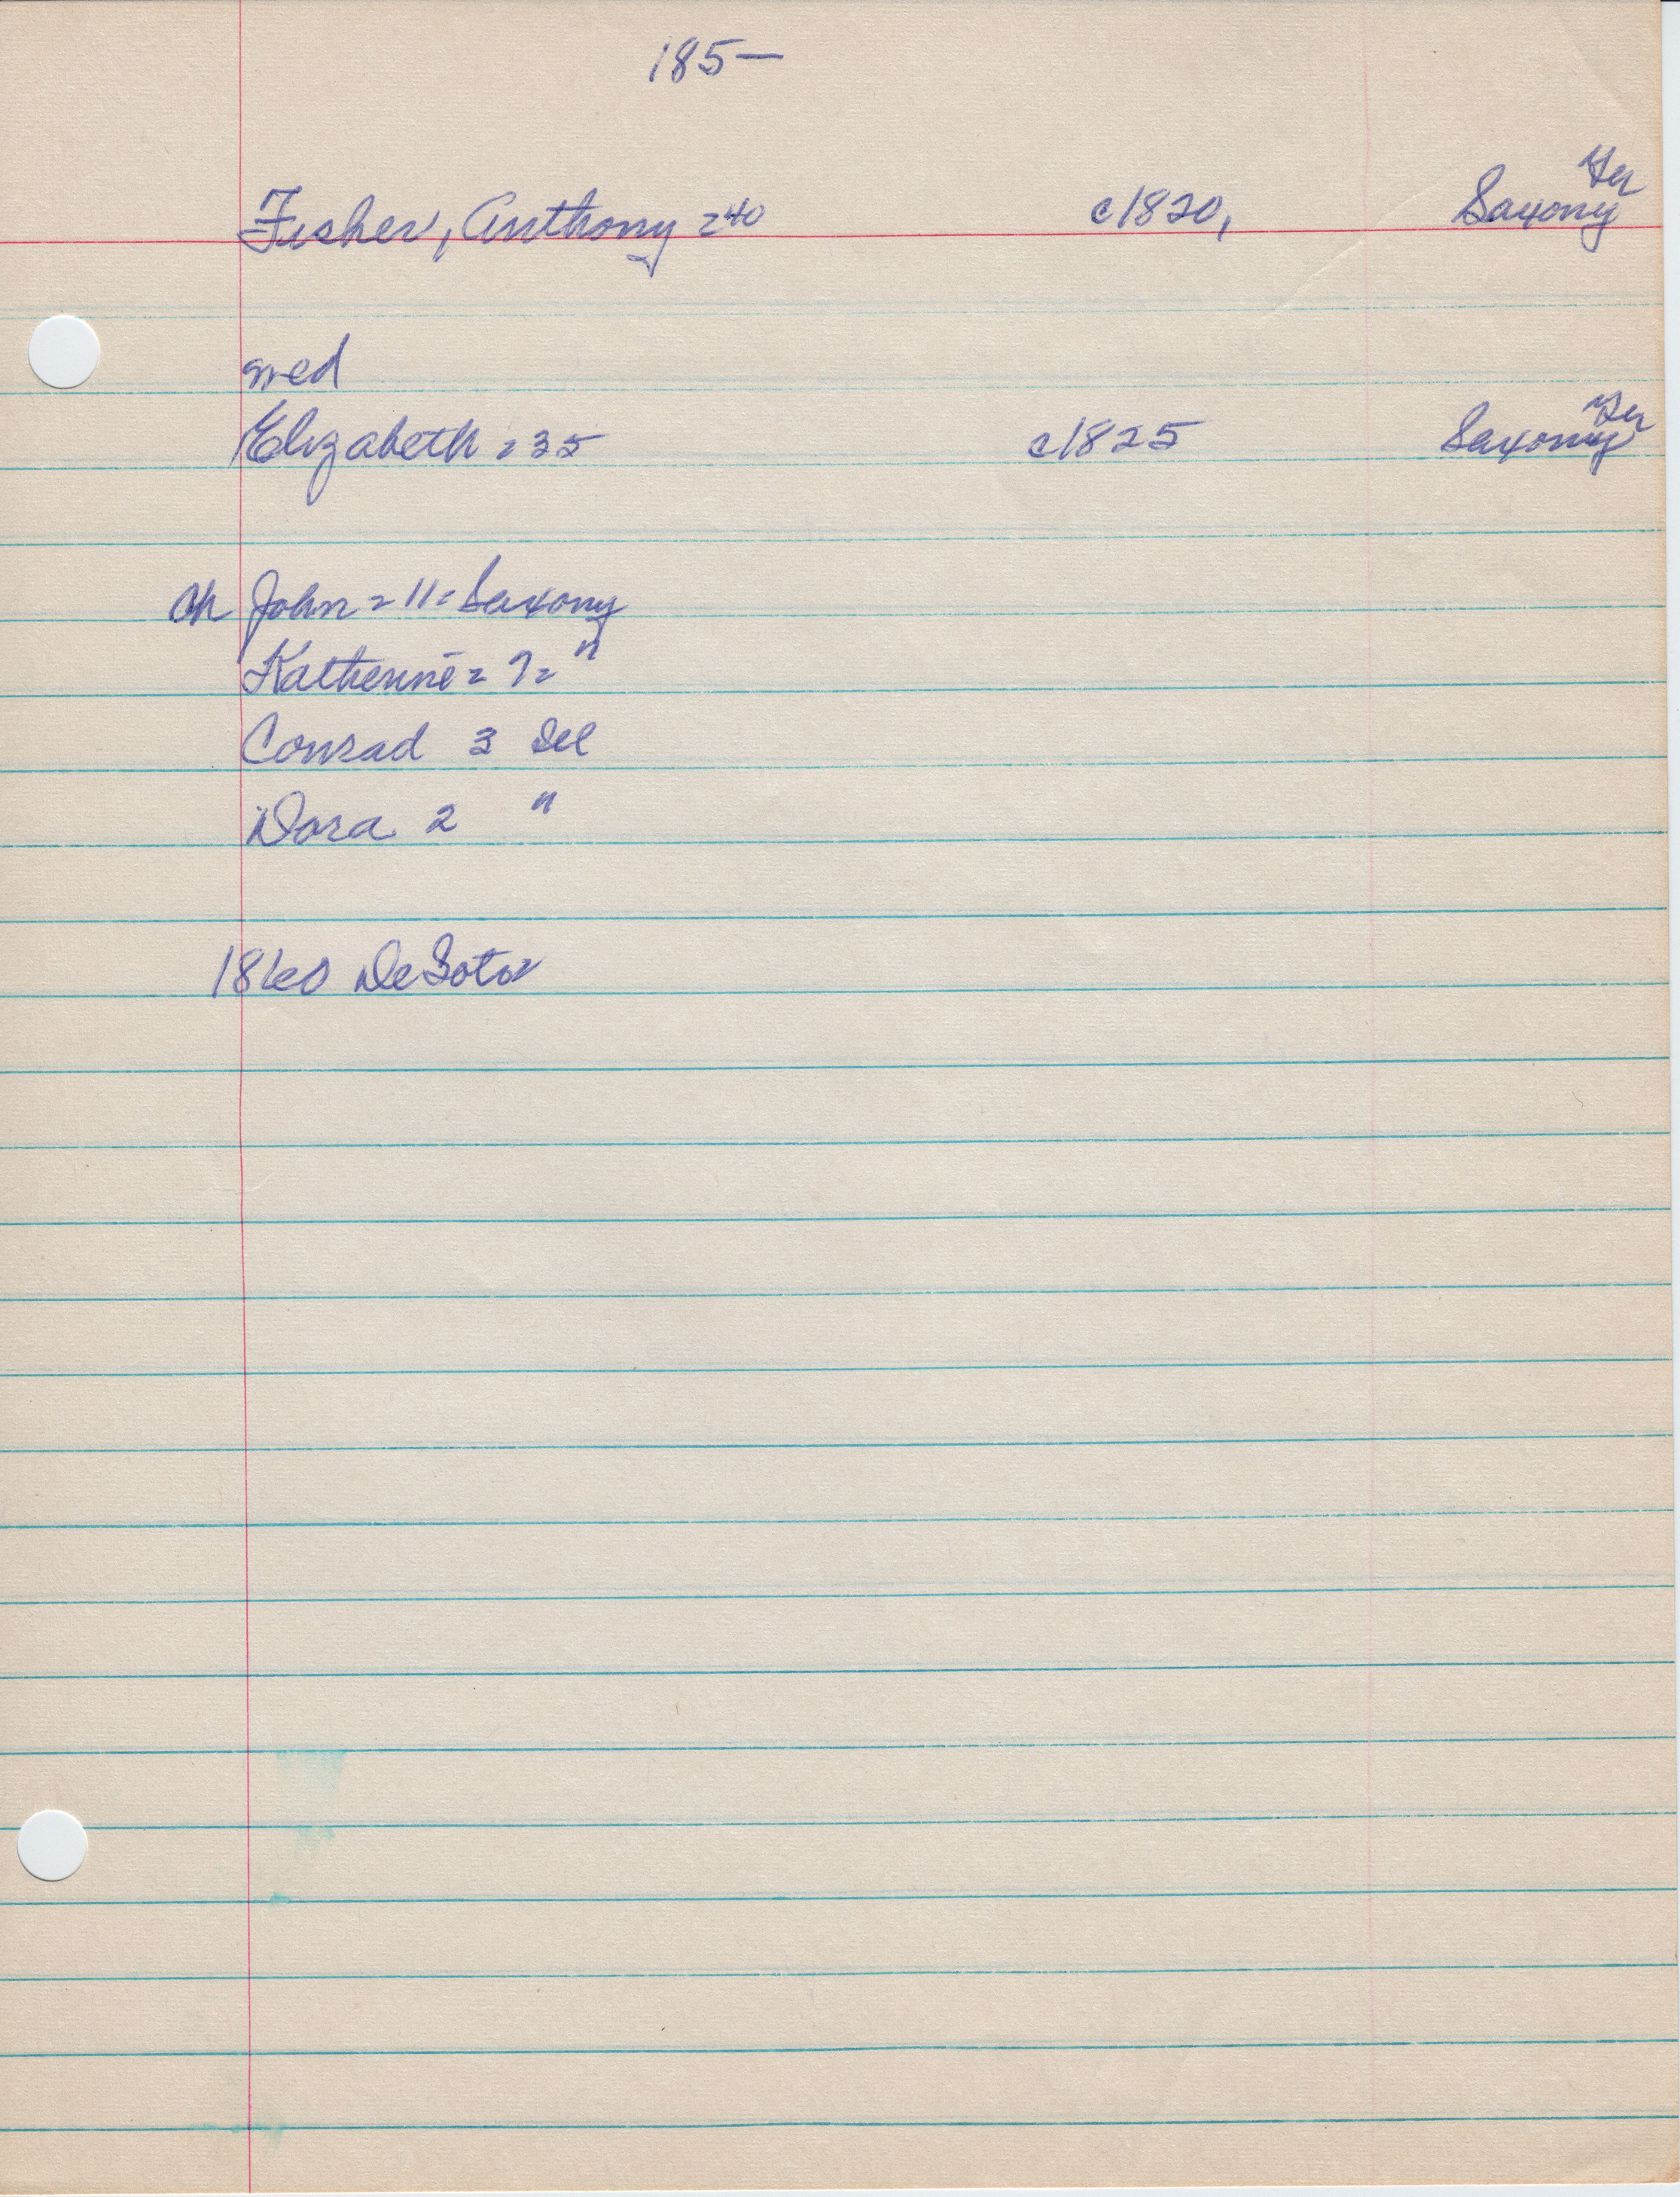 185—
Fisher, Anthony = 40 c1820, Saxony Ger
med
Elizabeth = 35 c1825 Saxony Ger
ch John = 11 = Saxony
Katherine = 7 = "
Conrad 3 Ill
Dora 2 "
1860 DeSoto